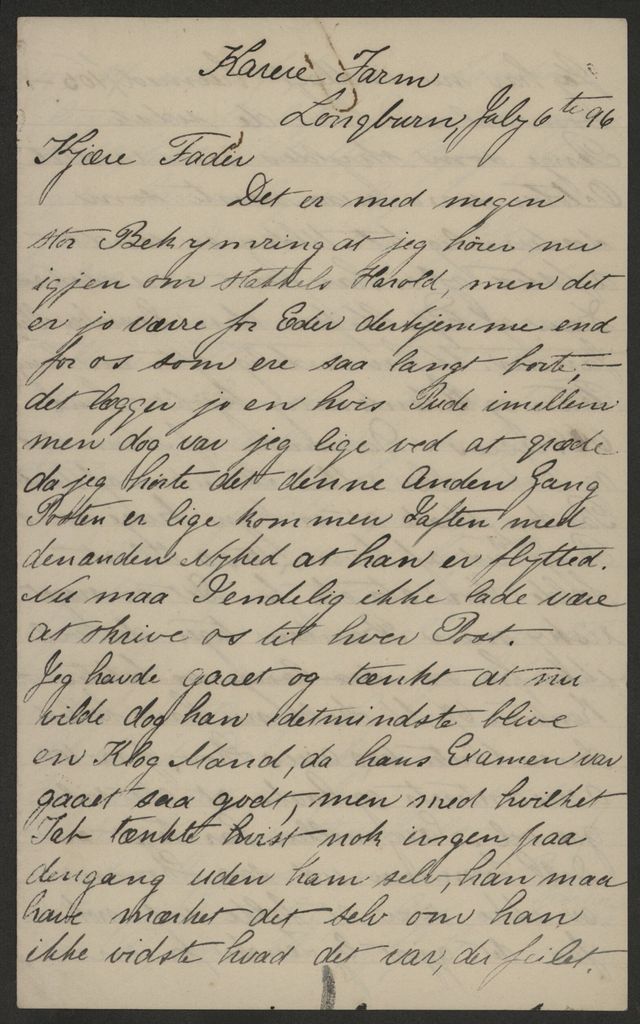 Karere Farm
Longburn, July 6te 96
Kjære Fader
Det er med megen
stor Bekymring at jeg hører nu
igjen om stakkels Harold, men det
er jo værre for Eder derhjemme end
for os som ere saa langt borte, —
det lægger jo en hvis Pude imellem
men dog var jeg lige ved at græde
da jeg hørte det denne Anden Gang
Posten er lige kommen Iaften med
den anden Nyhed at han er flytted.
Nu maa I endelig ikke lade være
at skrive os til hver Post.
Jeg havde gaaet og tænkt at nu
vilde dog han idetmindste blive
en Klog Mand, da hans Examen var
gaaet saa godt, men med hvilket
Tab tænkte hvist nok ingen paa
dengang uden ham selv, han maa
have mærket det selv om han
ikke vidste hvad det var, der feilet.